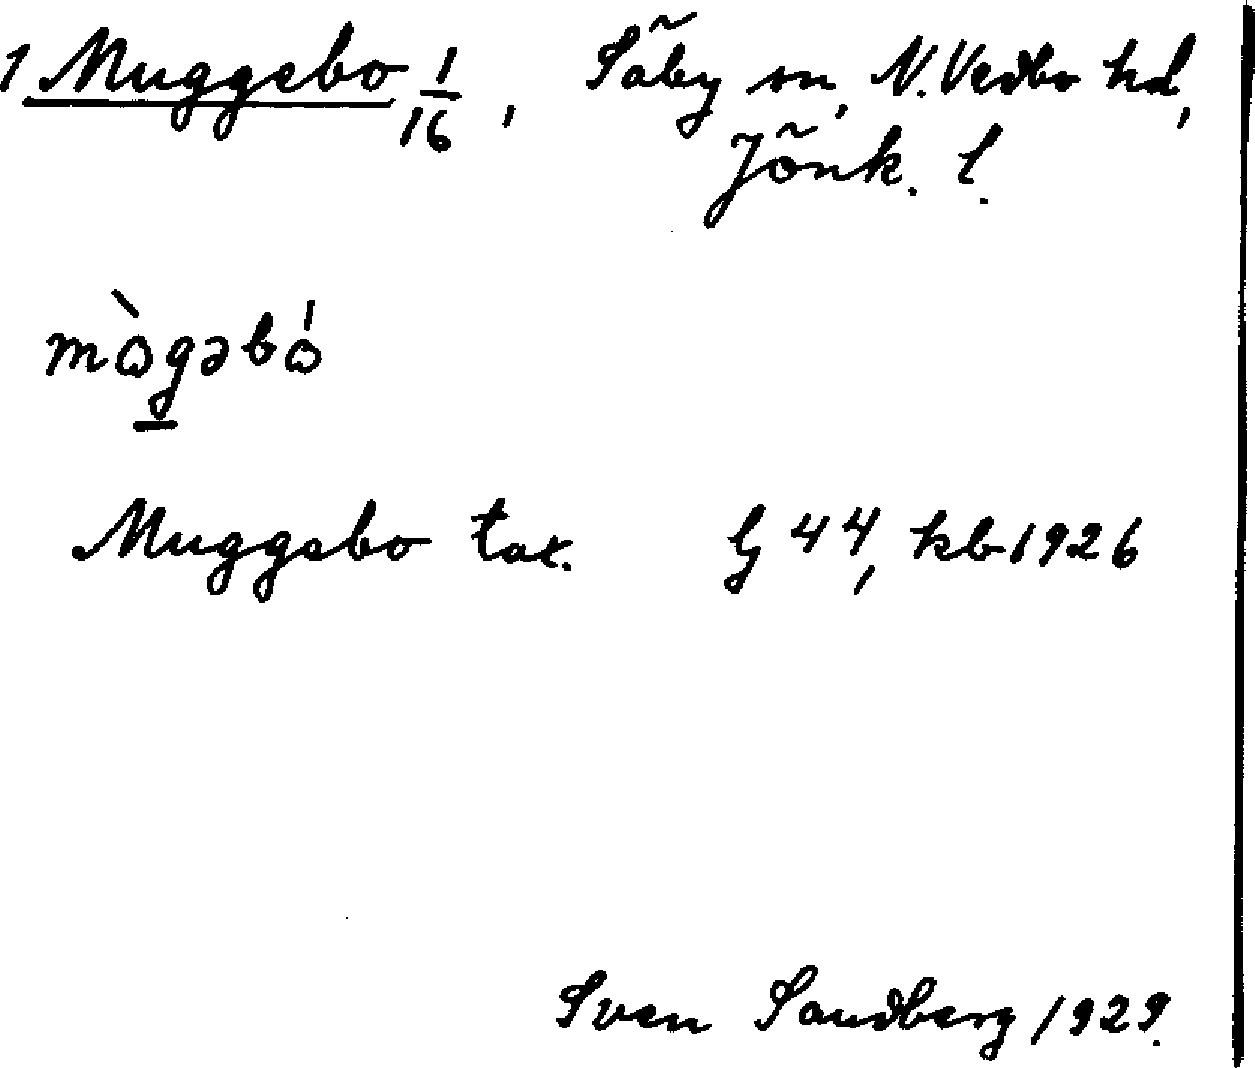 1 Muggebo 1/16, Säby sn, N. Vedbo hd,
Jönk. l.
mògəbó
Muggebo tax. G 44, kb 1926
Sven Sandberg 1929.